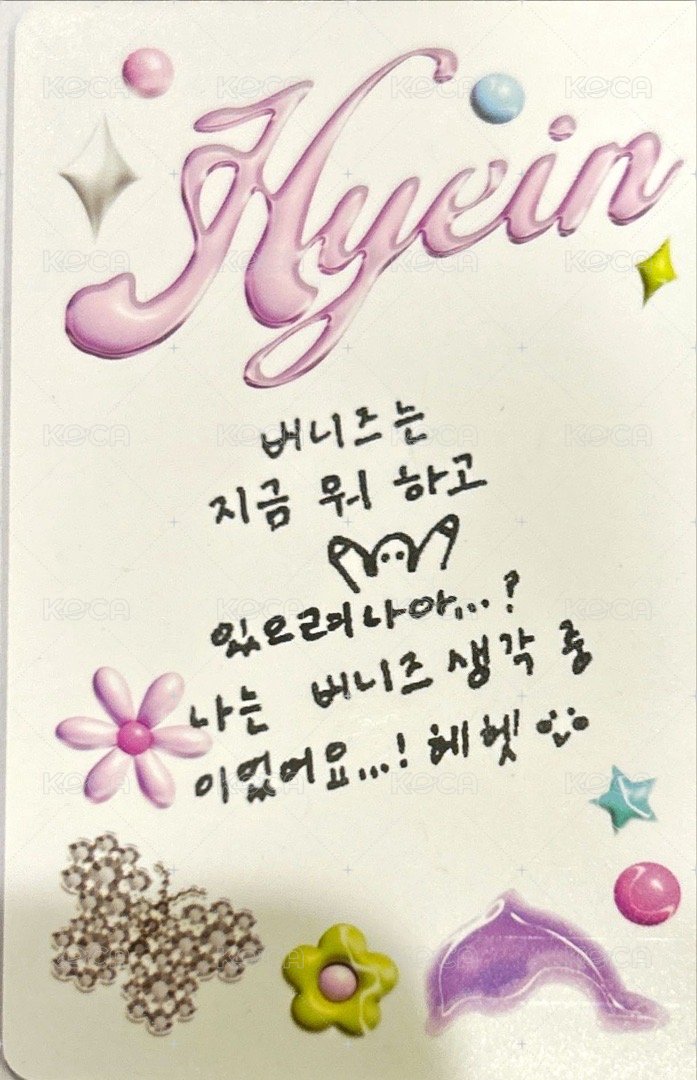 Hyein
버니즈는
지금 뭐 하고
있으려나아...?
나는 버니즈 생각 중
이었어요...! 헤헷
KOCA